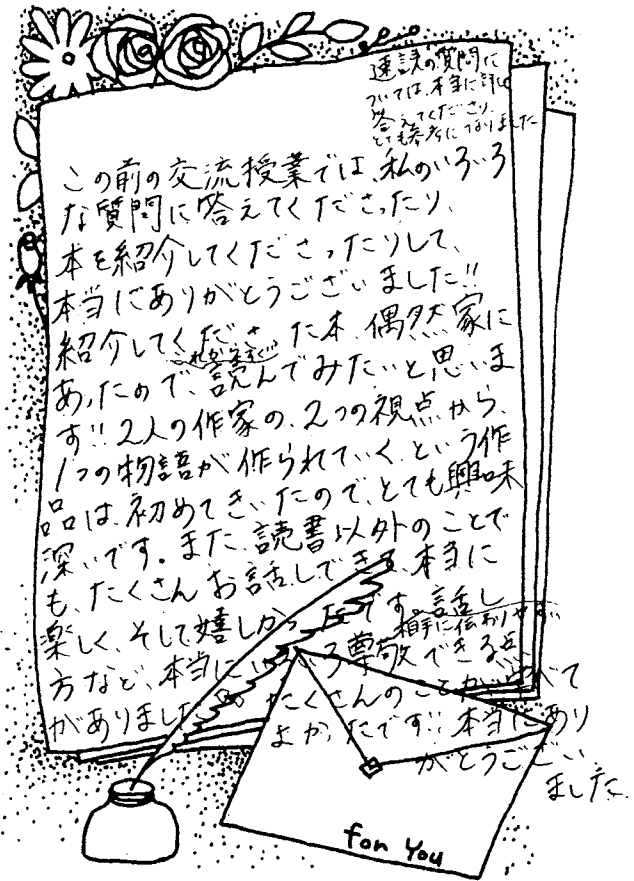 速読の質問に
ついては、本当に詳しく
答えてくださり、
とても参考になりました
この前の交流授業では、私のいろいろ
な質問に答えてくださったり、
本を紹介してくださったりして、
本当にありがとうございました!!
紹介してくださった本、偶然家に
あったので、読んでみたいと思いま
す!! 2人の作家の、2つの視点から、
1つの物語が作られていく、という作
品は、初めてきいたので、とても興味
深いです。また、読書以外のことで
も、たくさんお話しでき、本当に
楽しく、そして嬉しかったです。話し
相手に伝わりやすい
方など、本当にいろいろ尊敬できる点
がありました たくさんのことが
よかったです!! 本当にあり
がとうござい
ました
for You